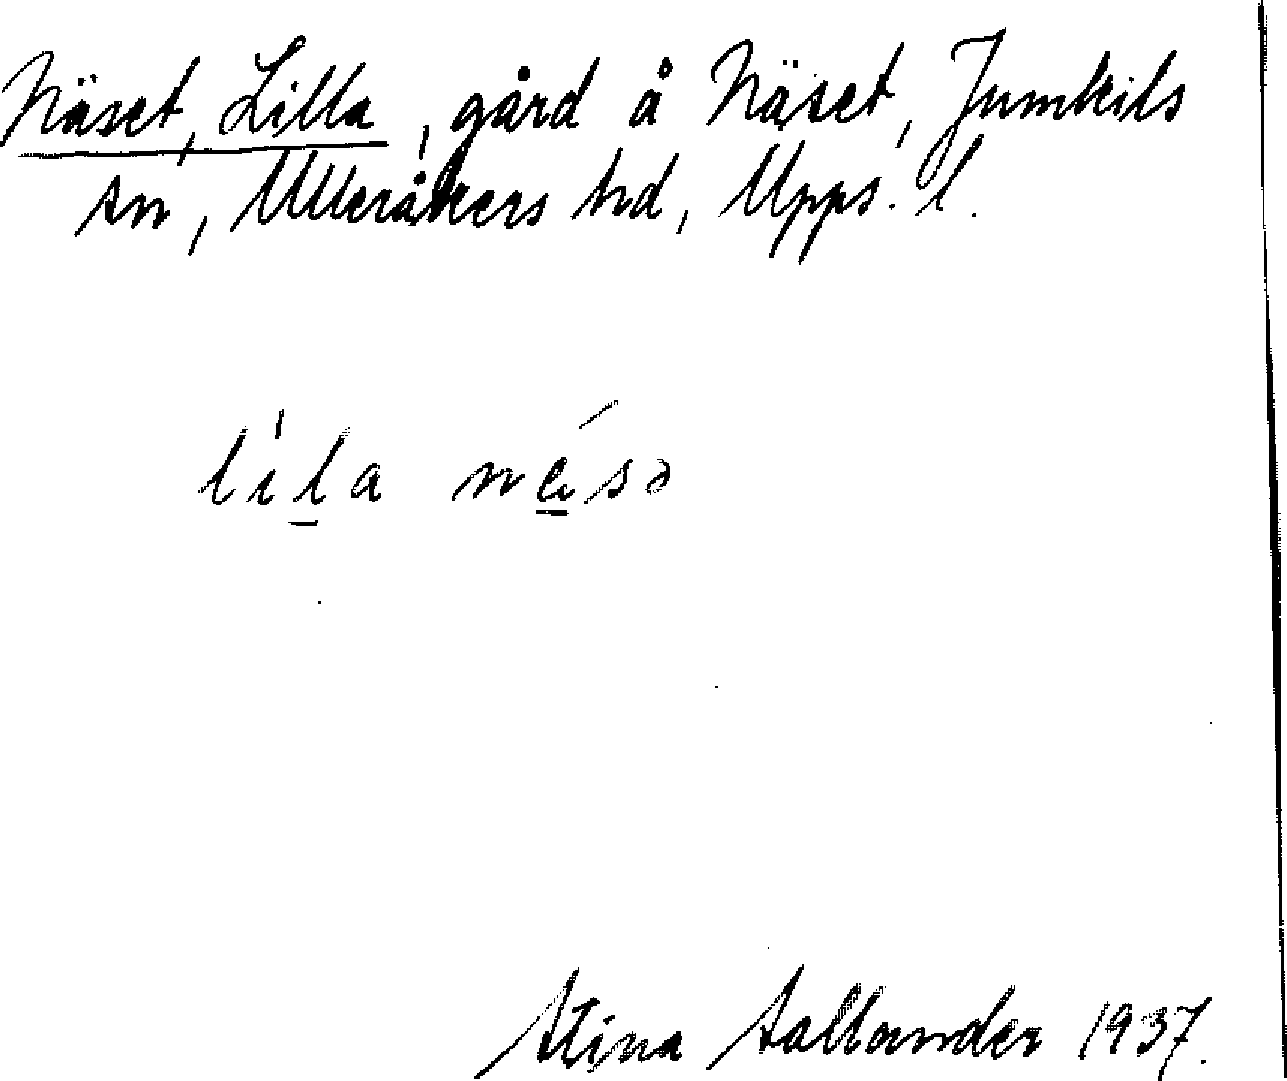 Näset, Lilla, gård å Näset, Jumkils
sn, Ulleråkers hd, Upps. l.
li̍l̲a nǽ̲sə
Stina Sallander 1937.